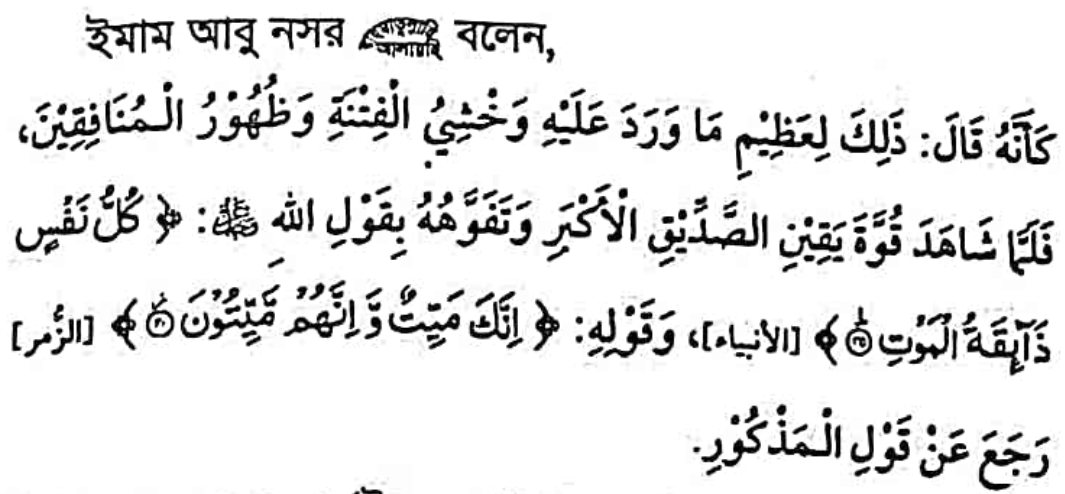 ইমাম আবু নসর রাহমাতুল্লাহি আলায়হি বলেন,
كَأَنَّهُ قَالَ: ذَلِكَ لِعَظِيْمِ مَا وَرَدَ عَلَيْهِ وَخَشِيَ الْفِتْنَةِ وَظُهُوْرُ الْمُنَافِقِيْنَ،
فَلَمَّا شَاهَدَ قُوَّةَ يَقِيْنِ الصِّدِّيْقِ الْأَكْبَرِ وَتَفَوَّهُهُ بِقَوْلِ اللهِ ﷻ: ﴿ كُلُّ نَفْسٍ
ذَآىِٕقَةُ الْمَوْتِ ۝۳۵ ﴾ [الأنبياء]، وَقَوْلِهِ: ﴿ اِنَّكَ مَيِّتٌ وَّ اِنَّهُمْ مَّيِّتُوْنَ ۝۳۰ ﴾ [الزُّمر]
رَجَعَ عَنْ قَوْلِ الْمَذْكُوْرِ.